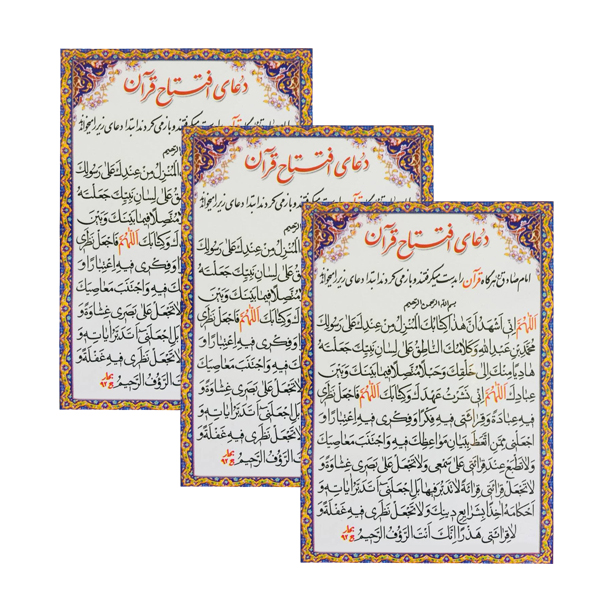 دعای افتتاح قرآن
دعای افتتاح قرآن
دعای افتتاح قرآن
امام صادق ع هرگاه قرآن را بدست میگرفتند و باز می کردند ابتدا دعای زیر را میخواندند
بسم الله الرحمن الرحیم
اَللّهُمَّ اِنّی اَشْهَدُ اَنَّ هذا کِتابُکَ الْمُنْزَلُ مِنْ عِنْدِکَ عَلی رَسُولِکَ
مُحَمَّدِ بْنِ عَبْدِ اللهِ وَ کَلامُکَ النّاطِقُ عَلی لِسانِ نَبِیِّکَ جَعَلْتَهُ
هادِیاً مِنْکَ اِلی خَلْقِکَ وَ حَبْلاً مُتَّصِلاً فیما بَیْنَکَ وَ بَیْنَ
عِبادِکَ اَللّهُمَّ اِنّی نَشَرْتُ عَهْدَکَ وَ کِتابَکَ اَللّهُمَّ فَاجْعَلْ نَظَری
فیهِ عِبادَةً وَ قِرائَتی فیهِ فِکْراً وَ فِکْری فیهِ اِعْتِباراً وَ
اجْعَلْنی مِمَّنِ اتَّعَظَ بِبَیانِ مَواعِظِکَ فیهِ وَ اجْتَنَبَ مَعاصِیَکَ
وَ لا تَطْبَعْ عِنْدَ قِرائَتی عَلی سَمْعی وَ لا تَجْعَلْ عَلی بَصَری غِشاوَةً وَ
لا تَجْعَلْ قِرائَتی قِرائَةً لا تَدَبُّرَ فیها بَلِ اجْعَلْنی اَتَدَبَّرُ ایاتِهِ وَ
اَحْکامَهُ اخِذاً بِشَرایِعِ دینِکَ وَ لا تَجْعَلْ نَظَری فیهِ غَفْلَةً وَ
لا قِرائَتی هَذَراً اِنَّکَ اَنْتَ الرَّؤُوفُ الرَّحیمُ